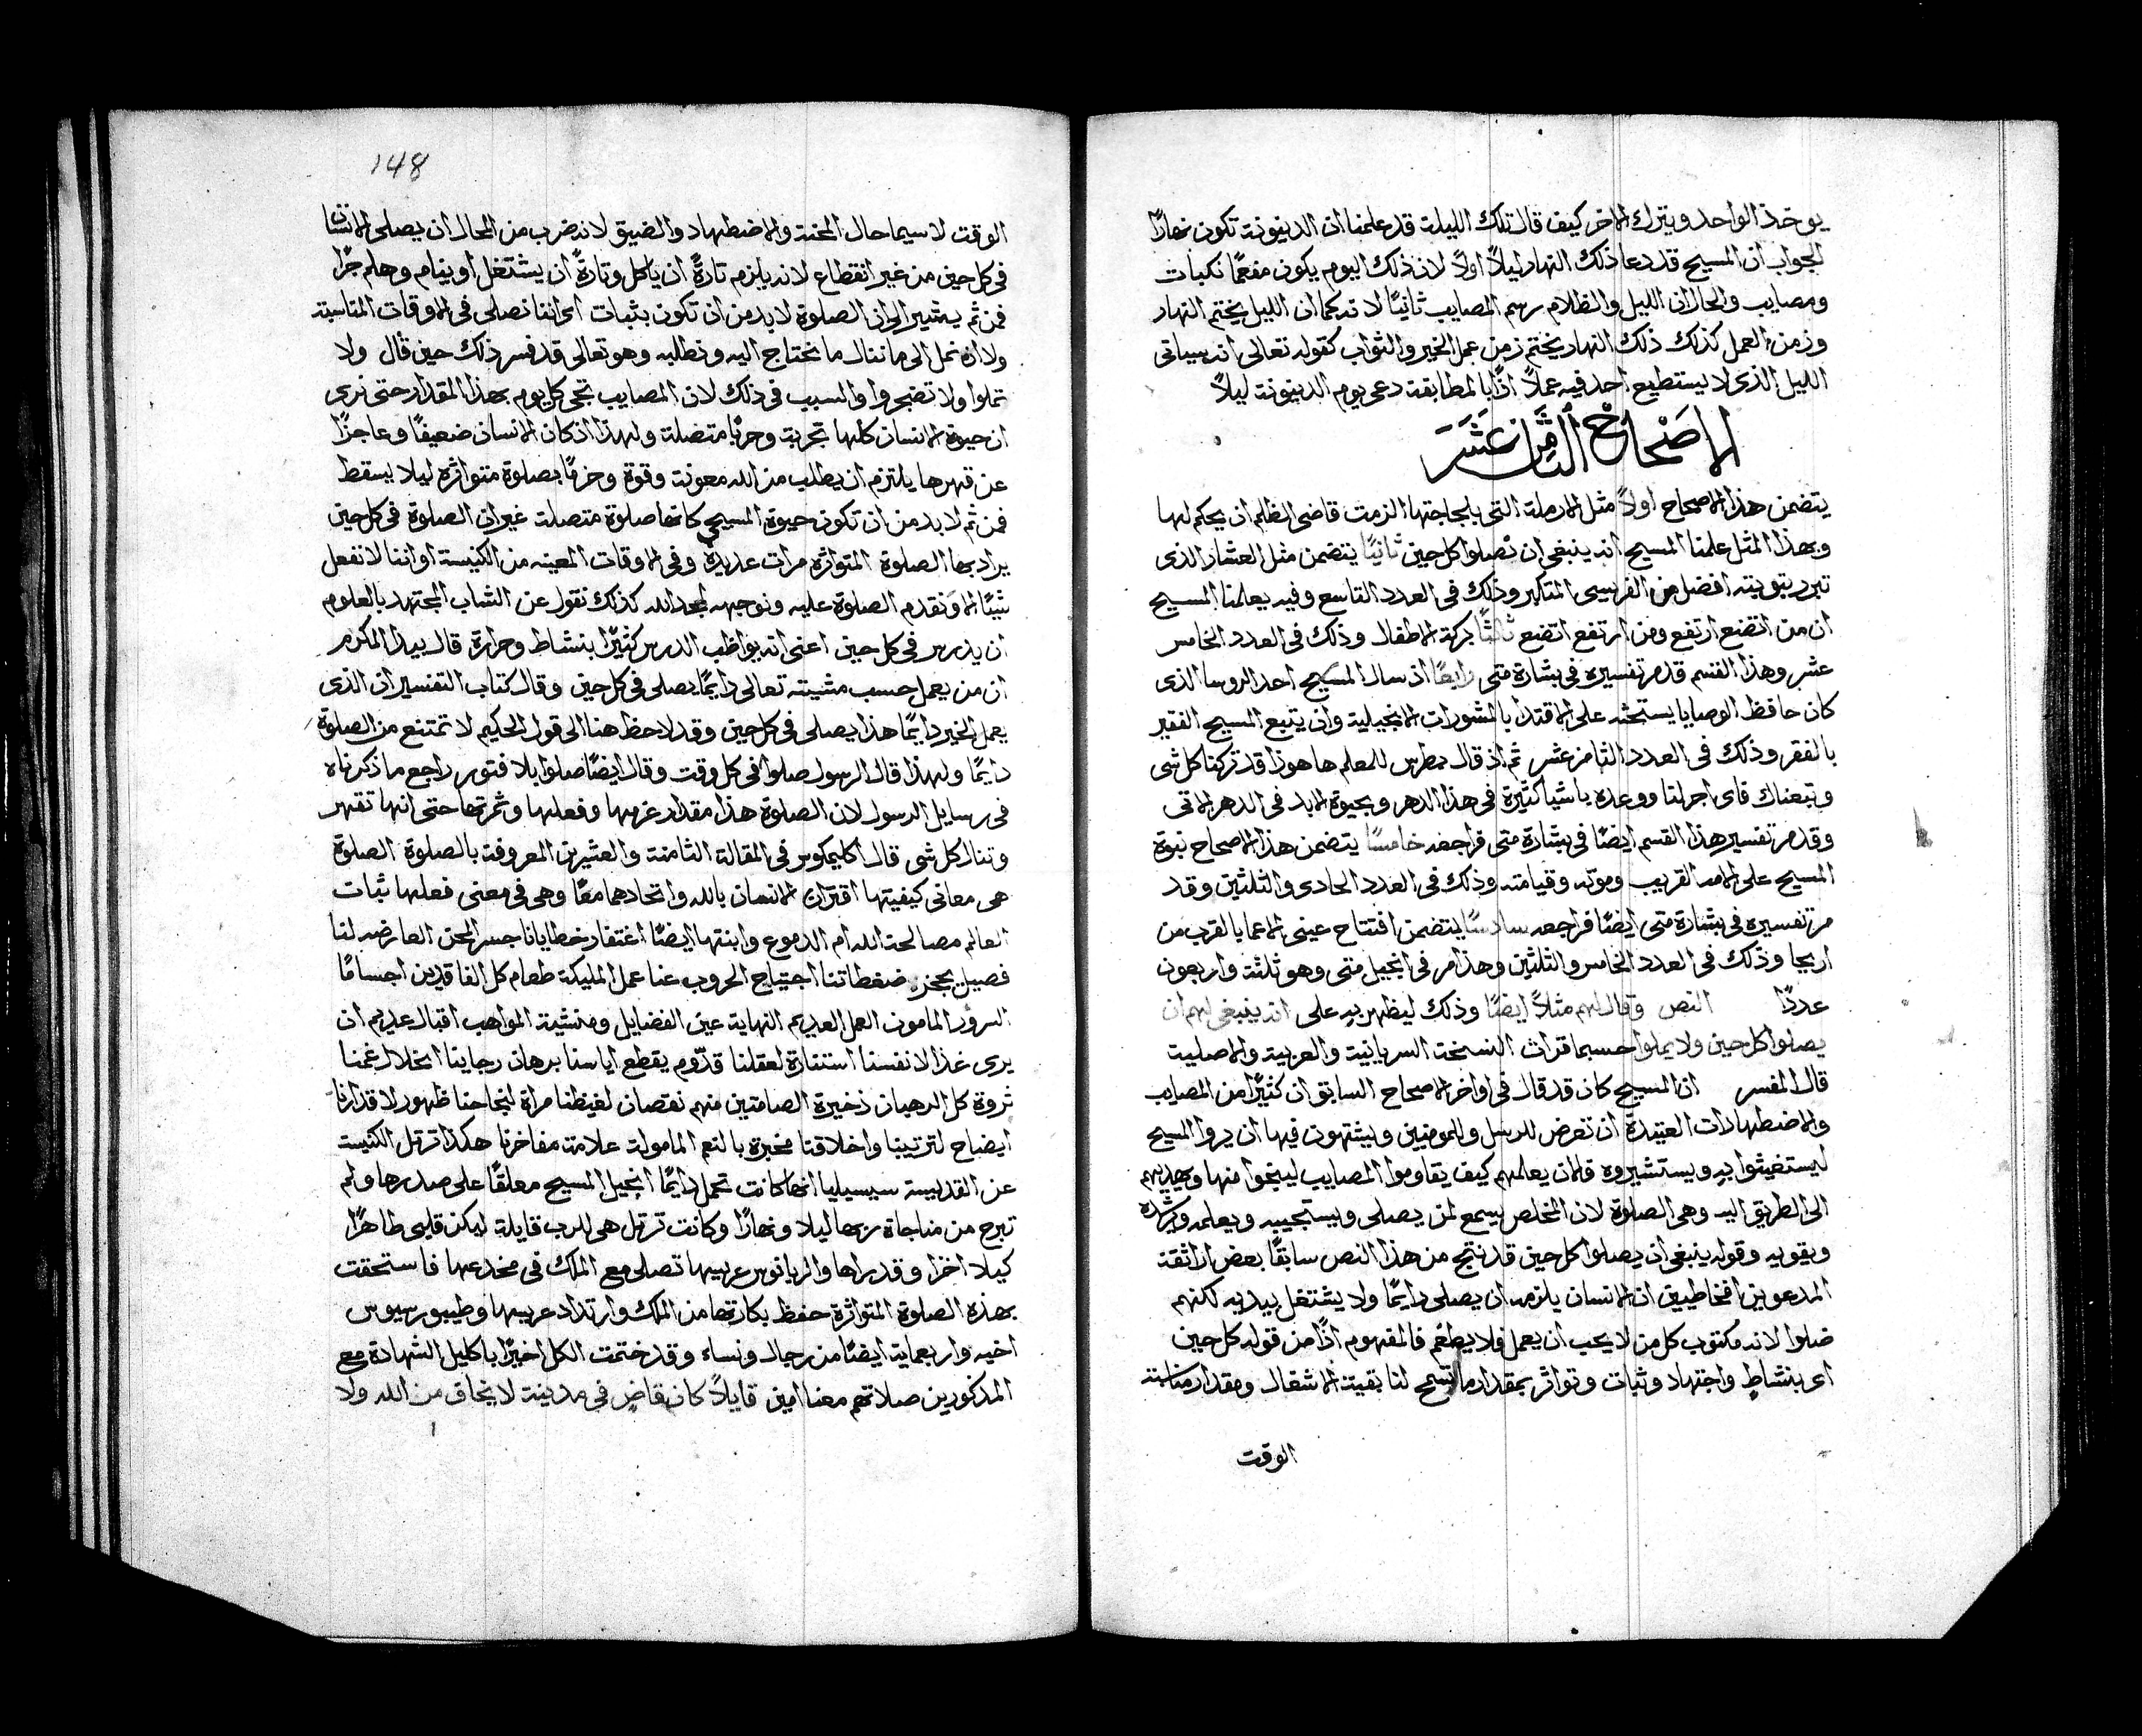 يوخذ الواحد ويترك الاخر كيف قال تلك الليلة قد علمنا ان الدينونة تكون نهارًا
الجواب ان المسيح قد دعا ذلك النهار ليلاً اولاً لان ذلك اليوم يكون مفعمًا نكبات
ومصايب والحال ان الليل والظلام رسم المصايب ثانيًا لانه كما ان الليل يختم النهار
وزمن العمل كذلك ذلك النهار يختم زمن عمل الخير والثواب كقوله تعالى انه سياتى
الليل الذى لا يستطيع احد فيه عملاً اذًا بالمطابقة دعى يوم الدينونة ليلاً
الاصحاح الثامن عشر
يتضمن هذا الاصحاح اولاً مثل الارملة التى بلجاجتها الزمت قاضى الظلم ان يحكم لها
وبهذا المثل علمنا المسيح انه ينبغى ان نصلوا كل حين ثانيًا يتضمن مثل العشار الذى
تبرر بتوبته افضل من الفريسى المتكبر وذلك فى العدد التاسع وفيه يعلمنا المسيح
ان من اتضع ارتفع ومن ارتفع اتضع ثالثًا بركة الاطفال وذلك فى العدد الخامس
عشر وهذا القسم قد مر تفسيره فى بشارة متى رابعًا اذ سال المسيح احد الروسا الذى
كان حافظ الوصايا يستحثه على الاقتدا بالمشورات الانجيلية وان يتبع المسيح الفقير
بالفقر وذلك فى العدد الثامن عشر ثم اذ قال بطرس للمعلم ها هوذا قد تركنا كل شى
وتبعناك فاى اجر لنا ووعده باشيا كثيرة فى هذا الدهر وبحيوة الابد فى الدهر الاتى
وقد مر تفسير هذا القسم ايضًا فى بشارة متى فراجعه خامسًا يتضمن هذا الاصحاح نبوة
المسيح على الامه القريب وموته وقيامته وذلك فى العدد الحادى والثلثين وقد
مر تفسيره فى بشارة متى ايضًا فراجعه سادسًا يتضمن افتتاح عينى الاعما بالقرب من
اريحا وذلك فى العدد الخامس والثلثين وهذا مر فى انجيل متى وهو ثلثة واربعون
عددًا النص وقال لهم مثلاً ايضًا وذلك ليظهر به على انه ينبغى لهم ان
يصلوا كل حين ولا يملوا حسبما قرات النسخة السريانية والعربية والاصلية
قال المفسر ان المسيح كان قد قال فى اواخر الاصحاح السابق ان كثيرًا من المصايب
والاضطهادات العتيدة ان تعرض للرسل وللمومنين ويشتهون فيها ان يروا المسيح
ليستغيثوا به ويستشيروه فالان يعلمهم كيف يقاوموا المصايب لينجوا منها ويهديهم
الى الطريق اليه وهى الصلوة لان المخلص يسمع لمن يصلى ويستجيبه ويعلمه ويرشده
ويقويه وقوله ينبغى ان يصلوا كل حين قد نتج من هذا النص سابقًا بعض اراتقة
المدعوين افخاطيين ان الانسان يلزمه ان يصلى دايمًا ولا يشتغل بيديه لكنهم
ضلوا لانه مكتوب كل من لا يحب ان يعمل فلا يطعم فالمفهوم اذًا من قوله كل حين
اى بنشاطٍ واجتهاد وثبات وتواتر بمقدار ما تسمح لنا بقية الاشغال ومقدار مناسبة
الوقت
148
الوقت لا سيما حال المحنة والاضطهاد والضيق لانه ضرب من المحال ان يصلى الانسان
فى كل حين من غير انقطاع لانه يلزم تارةً ان ياكل وتارةً ان يشتغل او ينام وهلم جرًا
فمن ثم يشير الى ان الصلوة لا بد من ان تكون بثبات اى اننا نصلى فى الاوقات المناسبة
ولا نمل الى ما ننال ما نحتاج اليه ونطلبه وهو تعالى قد فسر ذلك حين قال ولا
تملوا ولا تضجروا والسبب فى ذلك لان المصايب تجى كل يوم بهذا المقدار حتى نرى
ان حيوة الانسان كلها تجربة وحربًا متصلة ولهذا اذ كان الانسان ضعيفًا وعاجزًا
عن قهرها يلتزم ان يطلب من الله معونة وقوة وحزمًا بصلوة متواترة ليلا يسقط
فمن ثم لا بد من ان تكون حيوة المسيحي كانها صلوة متصلة غير ان الصلوة فى كل حين
يراد بها الصلوة المتواترة مرات عديدة وفى الاوقات المعينه من الكنيسة او اننا لا نفعل
شيًا الا ونقدم الصلوة عليه ونوجهه لمجد الله كذلك نقول عن الشاب المجتهد بالعلوم
ان يدرس فى كل حين اعنى انه يواظب الدرس كثيرًا بنشاط وحرارة قال بيدا المكرم
ان من يعمل حسب مشيته تعالى دايمًا يصلى فى كل حين وقال كتاب التفسير ان الذى
يعمل الخير دايمًا هذا يصلى فى كل حين وقد لاحظ هنا الى قول الحكيم لا تمتنع من الصلوة
دايمًا ولهذا قال الرسول صلوا فى كل وقت وقال ايضًا صلوا بلا فتور راجع ما ذكرناه
فى رسايل الرسول لان الصلوة هذا مقدار عزمها وفعلها وثمرتها حتى انها تقهر
وتنال كل شى قال اكليمكوس فى المقالة الثامنة والعشرين المعروفة بالصلوة الصلوة
هى معانى كيفيتها اقتران الانسان بالله واتحادهما معًا وهى فى معنى فعلها ثبات
العالم مصالحة الله ام الدموع وابنتها ايضًا اغتفار خطايانا جسر المحن العارضه لنا
فصيل يحجز ضغطاتنا اجتياح الحروب عنا عمل المليكة طعام كل الفاقدين اجسامًا
السرور المامون العمل العديم النهاية عين الفضايل ومنشية المواهب اقبال عديم ان
يرى غذا لانفسنا استنارة لعقلنا قدّوم يقطع اياسنا برهان رجاينا انحلال غمنا
ثروة كل الرهبان ذخيرة الصامتين منهم نقصان لغيظنا مراة لنجاحنا ظهور لاقدارنا
ايضاح لترتيبنا واخلاقنا مخبرة بالنعم المامولة علامة مفاخرنا هكذا ترتل الكنيسة
عن القديسة سيسيليا انها كانت تحمل دايمًا انجيل المسيح معلقًا على صدرها ولم
تبرح من مناجاة ربها ليلا ونهارًا وكانت ترتل هى للرب قايلة ليكن قلبى طاهرًا
كيلا اخزا وقد راها والريانوس عريسها تصلى مع الملك فى مخدعها فاستحقت
بهذه الصلوة المتواترة حفظ بكارتها من الملك وارتداد عريسها وطيبورسيوس
اخيه واربعماية ايضًا من رجال ونساء وقد ختمت الكل اخيرًا باكليل الشهادة مع
المذكورين صلاتهم معنا امين قايلاً كان قاضٍ فى مدينة لا يخاف من الله ولا